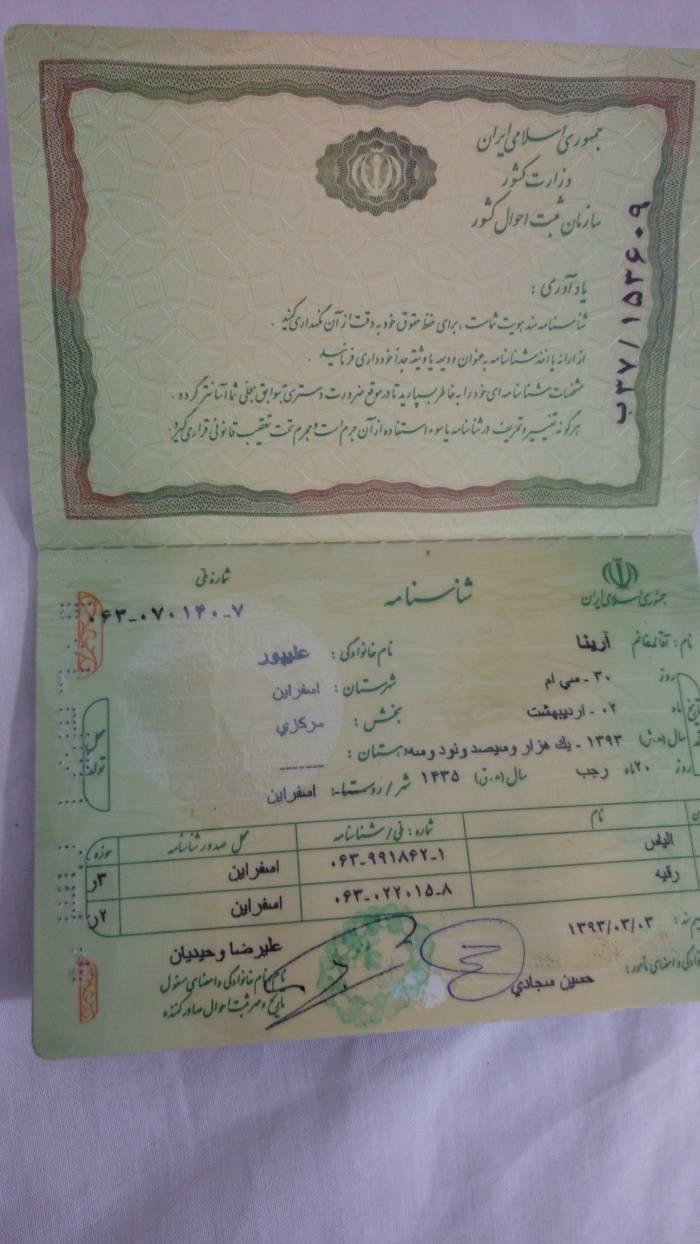 جمهوری اسلامی ایران
وزارت کشور
سازمان ثبت احوال کشور
ب۳۷/۱۵۳۶۰۹
یادآوری :
شناسنامه سند هویت شماست ، برای حفظ حقوق خود به دقت از آن نگهداری کنید .
از ارائه یا اخذ شناسنامه به عنوان ودیعه یا وثیقه جداً خودداری فرمائید .
مشخصات شناسنامه ای خود را به خاطر بسپارید تا در موقع ضرورت دسترسی به سوابق سجلی شما آسانتر گردد .
هرگونه تغییر و تحریف در شناسنامه یا سوء استفاده از آن جرم است و مجرم تحت تعقیب قانونی قرار می گیرد .
جمهوری اسلامی ایران
شناسنامه
شماره ملی
۰۶۳-۰۷۰۱۴۰-۷
نام : آقا/خانم آرینا
نام خانوادگی : علیپور
روز ۳۰ - سي ام
شهرستان : اسفراین
ماه ۰۲ - اردیبهشت
بخش : مرکزي
سال (ه.ش) ۱۳۹۳ - یك هزار و سیصد و نود و سه
دهستان : ------
روز ۲۰ ماه رجب سال (ه.ق) ۱۴۳۵
شهر / روستا : اسفراین
محل تولد
نام
شماره : ملی / شناسنامه
محل صدور شناسنامه
حوزه
الیاس ۰۶۳-۹۹۱۸۶۲-۱ اسفراین ۳ر
رقیه ۰۶۳-۰۲۲۰۱۵-۸ اسفراین ۲ر
۱۳۹۳/۰۳/۰۳
علیرضا وحیدیان
حسین سجادي
نام ، نام خانوادگی و امضای مسئول
تاریخ و مهر ثبت احوال صادر کننده